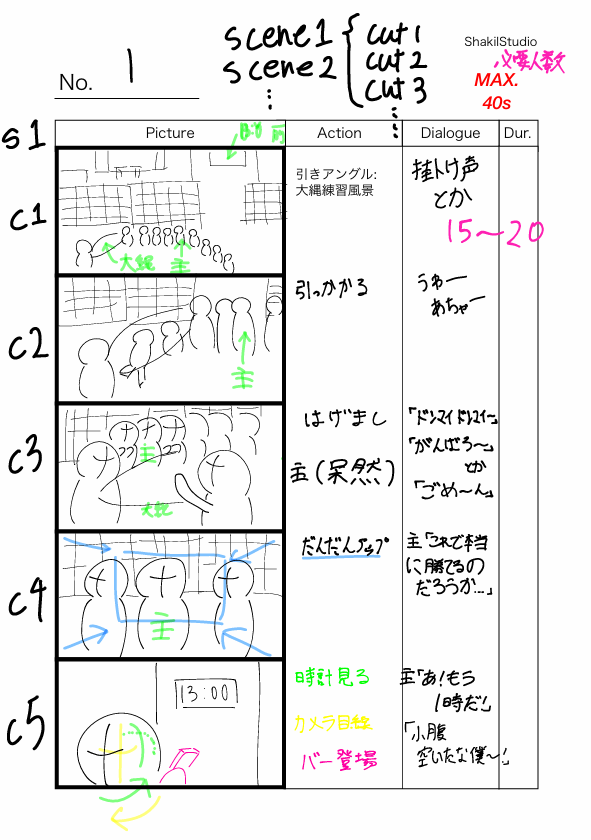 scene1 { cut 1
scene2 cut 2
cut 3
ShakilStudio
必要人数
MAX.
40s
No. 1
S1
Picture Action Dialogue Dur.
C1
大縄
主
引きアングル:
大縄練習風景
掛け声
とか
15〜20
C2
主
引っかかる
うわー
あちゃー
C3
主
大縄
はげまし
主(呆然)
「ドンマイドンマイー」
「がんばろ〜」
とか
「ごめ〜ん」
C4
主
だんだんアップ
主「これで本当
に勝てるの
だろうか…」
C5
13:00
時計見る
カメラ目線
バー登場
主「あ!もう
1時だ!」
「小腹
空いたな僕〜!